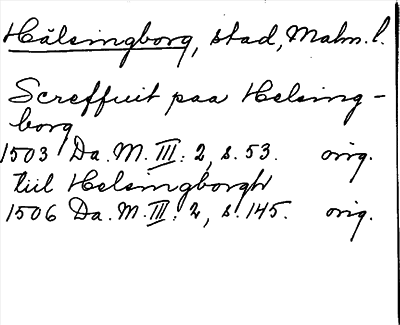 Hälsingborg, stad, Malm. l.
Screffuit paa Helsing-
borg
1503 Da. M. III: 2, s. 53. orig.
tiil Helsingborgh
1506 Da. M. III: 2, s. 145. orig.